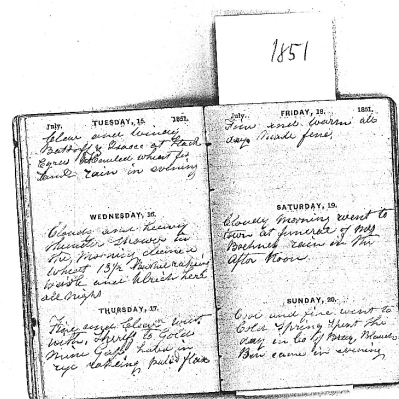 1851
July. TUESDAY, 15. 1851.
Clear and windy
& Isaac at Stack
hauled wheat for
rain in evening
WEDNESDAY, 16.
Cloudy and heavy
thunder shower in
the morning cleaned
wheat 13½
and Ulrich here
all night
THURSDAY, 17.
Fine and Clear went
with Sheriff to Gold
Mine Gap hands in
rye raking pulld flax
FRIDAY, 18. 1851.
Fine and warm all
day made fine
SATURDAY, 19.
Cloudy morning went to
town at funeral of Mrs
rain in the
After Noon
SUNDAY, 20.
Cool and fine went to
Cold Spring Spent the
day in Co of
came in evening